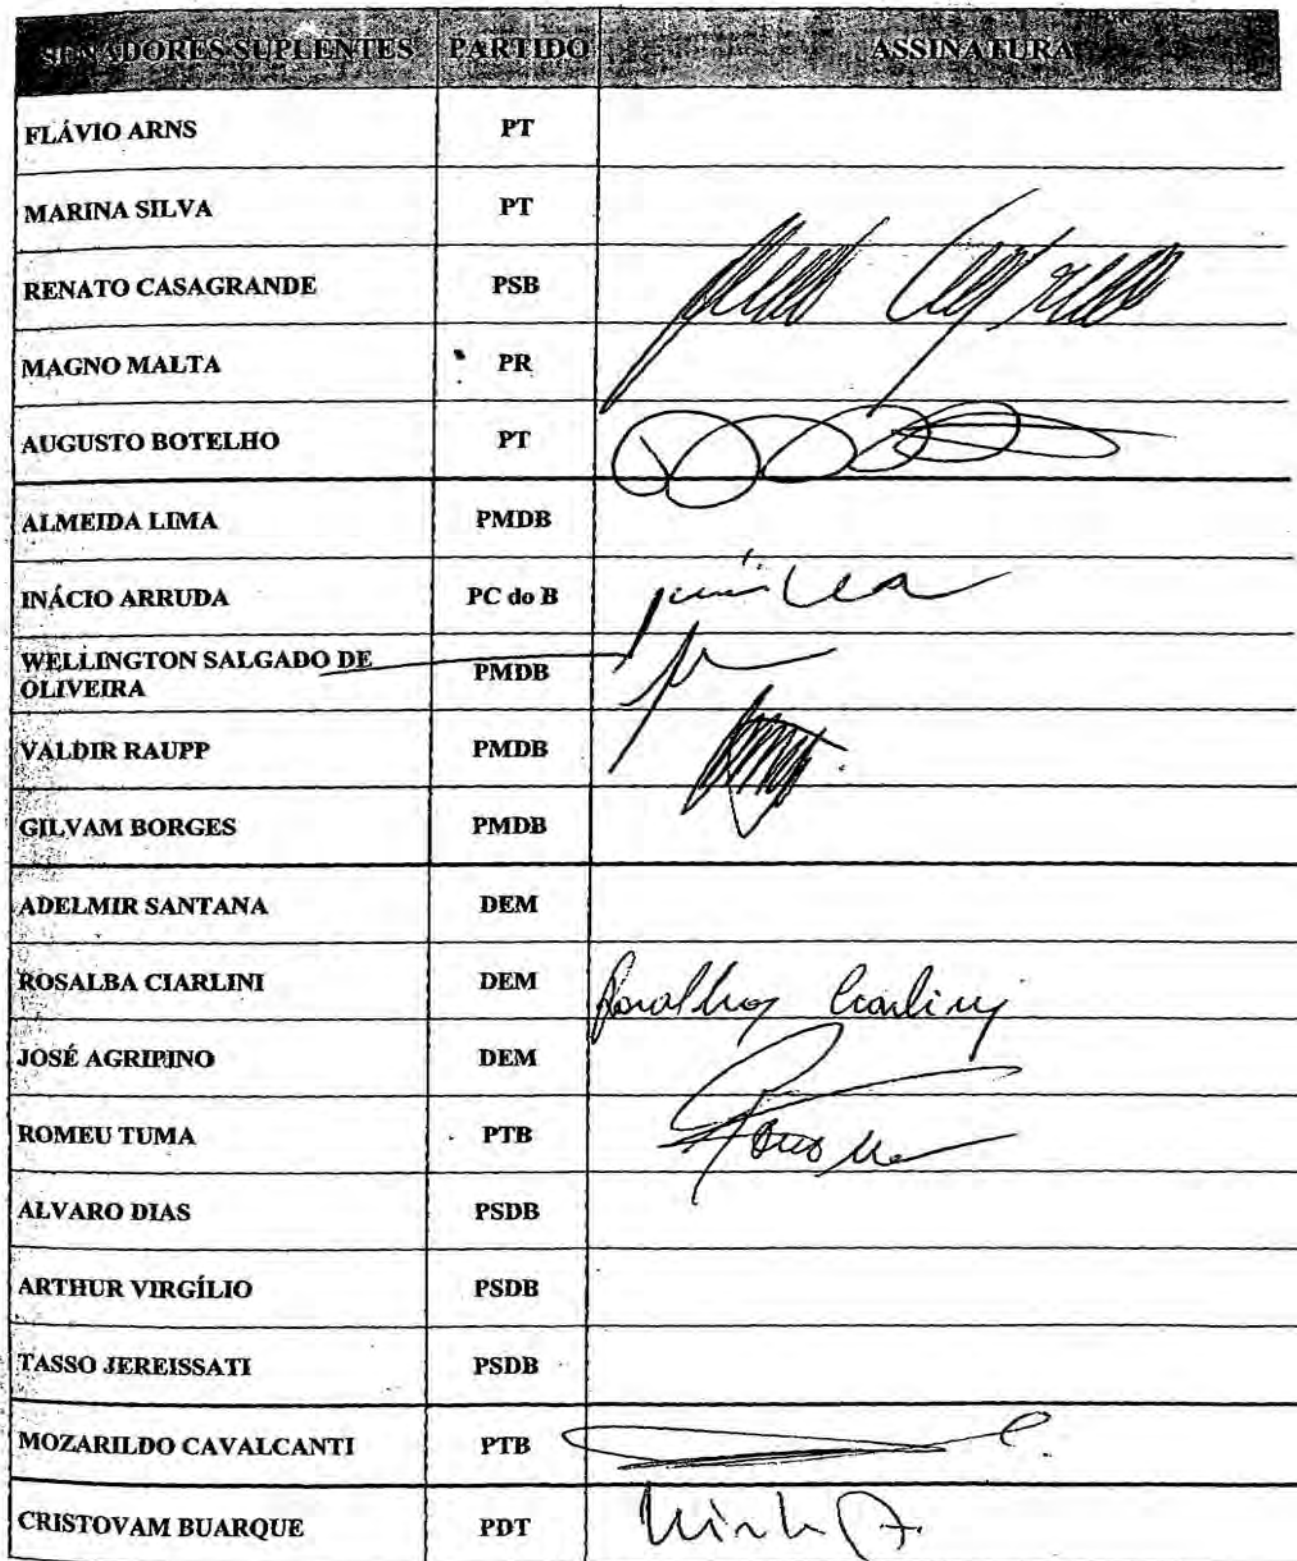 SENADORES SUPLENTES PARTIDO ASSINATURA
FLÁVIO ARNS PT
MARINA SILVA PT
RENATO CASAGRANDE PSB
MAGNO MALTA PR
AUGUSTO BOTELHO PT
ALMEIDA LIMA PMDB
INÁCIO ARRUDA PC do B
WELLINGTON SALGADO DE
OLIVEIRA PMDB
VALDIR RAUPP PMDB
GILVAM BORGES PMDB
ADELMIR SANTANA DEM
ROSALBA CIARLINI DEM Rosalba Ciarlini
JOSÉ AGRIPINO DEM
ROMEU TUMA PTB
ALVARO DIAS PSDB
ARTHUR VIRGÍLIO PSDB
TASSO JEREISSATI PSDB
MOZARILDO CAVALCANTI PTB
CRISTOVAM BUARQUE PDT